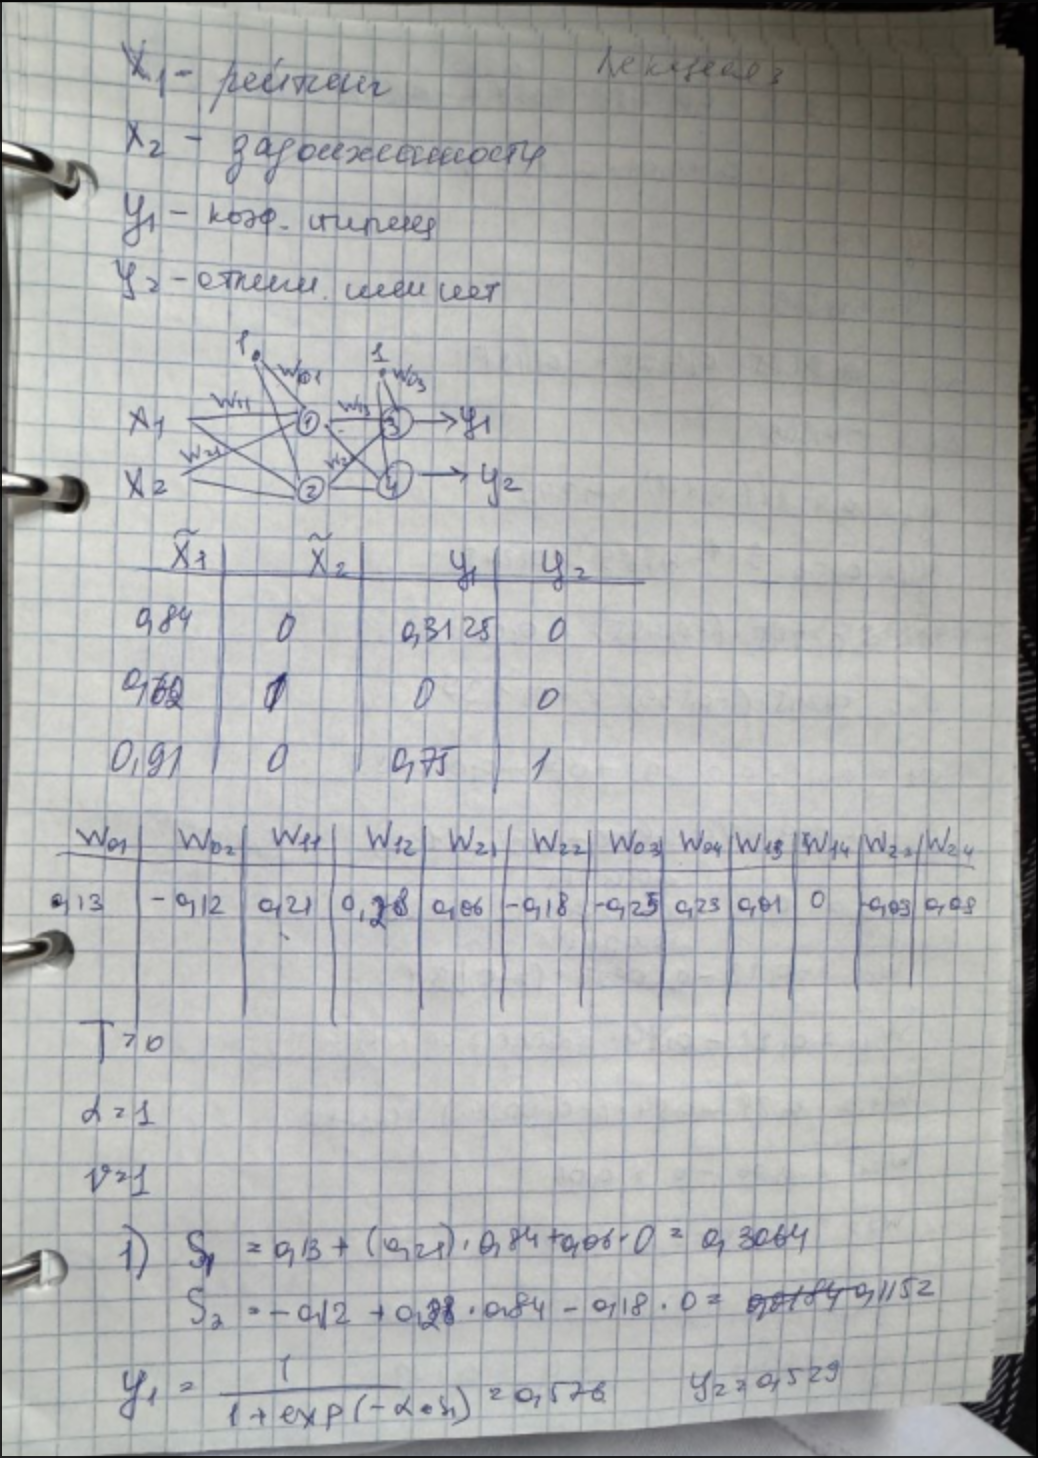 X₁ - рейтинг
X₂ - задолженность
y₁ - коэф.
y₂ - отлич. или нет
1 1
W₀₁ W₀₃
X₁ W₁₁ 1 W₁₃ 3 → y₁
W₂₁
X₂ 2 4 → y₂
X̃₁ X̃₂ y₁ y₂
0,84 0 0,3125 0
1 0 0
0,91 0 0,75 1
W₀₁ W₀₂ W₁₁ W₁₂ W₂₁ W₂₂ W₀₃ W₀₄ W₁₃ W₁₄ W₂₃ W₂₄
0,13 -0,12 0,21 0,28 0,06 -0,18 -0,25 0,23 0,01 0 -0,03 0,09
T=0
α=1
ν=1
1) S₁ = 0,13 + (0,21) · 0,84 + 0,06 · 0 = 0,3064
S₂ = -0,12 + 0,28 · 0,84 - 0,18 · 0 = 0,1152
y₁ = 1 / (1 + exp(-α·S₁)) = 0,576 y₂ = 0,529